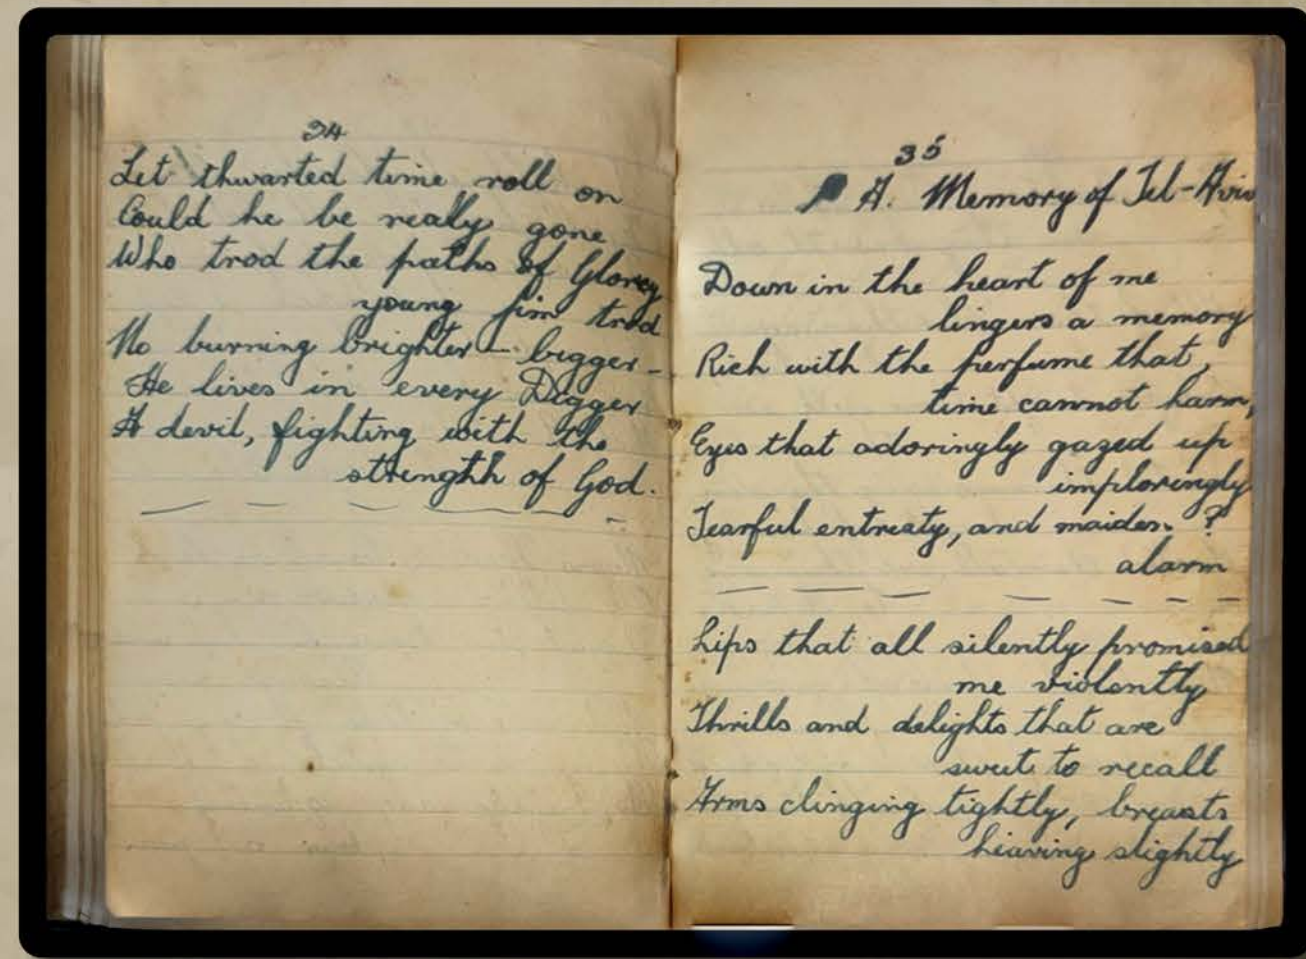 34
Let thwarted time roll on
Could he be really gone
Who trod the paths of Glorey
young Jim trod
No burning brighter — bigger -
He lives in every Digger
A devil, fighting with the
strength of God.
35
A. Memory of Tel-Aviv
Down in the heart of me
lingers a memory
Rich with the perfume that,
time cannot harm,
Eyes that adoringly gazed up
imploringly
Tearful entreaty, and maiden. ?
alarm
Lips that all silently promised
me violently
Thrills and delights that are
sweet to recall
Arms clinging tightly, breasts
heaving slightly